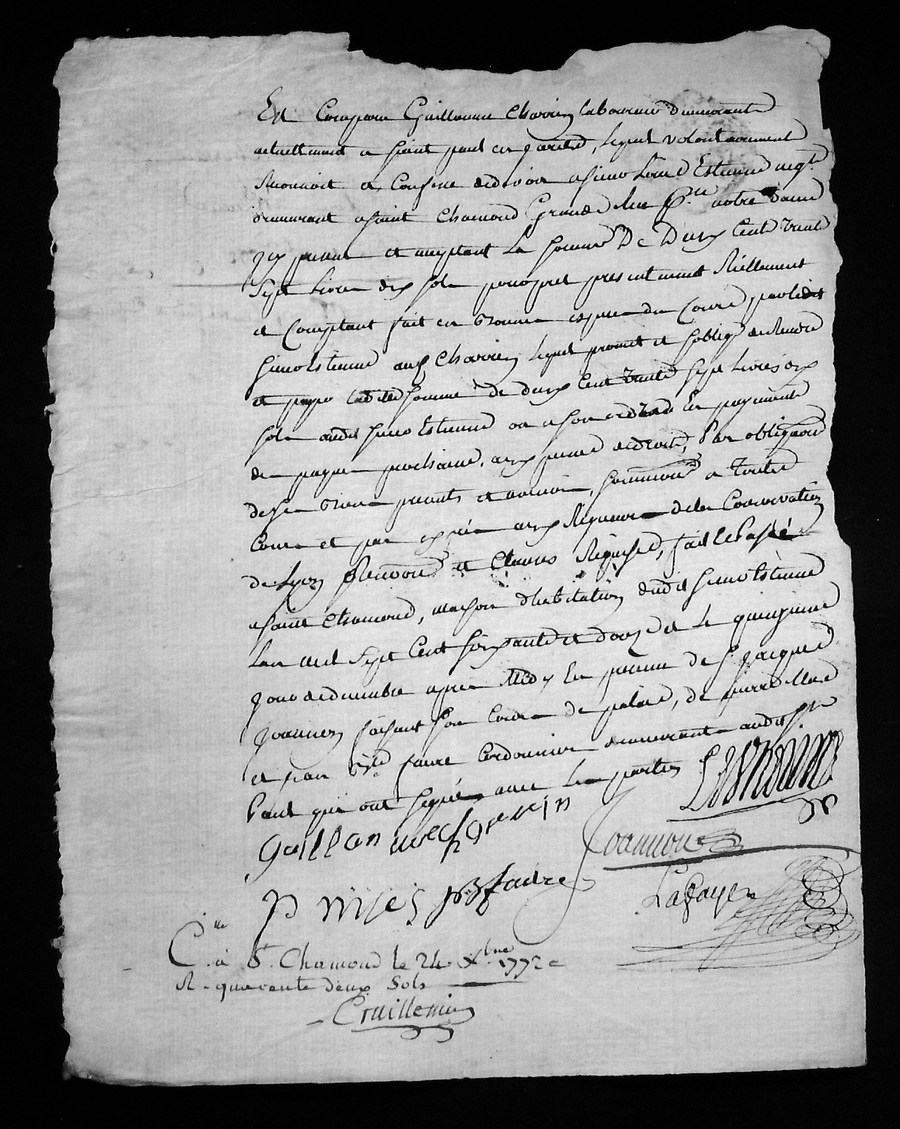 Est Comparu Guillaume Charvin laboureur demeurante
actuellement a Saint paul en Jarêtz, lequel volontairement
Reconnoit et Confesse devoir a Sieur Estienne negt.
demeurant a Saint Chamond Grande Rue notre Dame
icy present et acceptant la Somme De Deux Cent trente
Sept livres dix sols pour pret presentement Réellement
et Comptant fait en bonnes espèces du Cours par ledit
Sieur Estienne aud. Charvin lequel promet et s'oblige de Rendre
et payer ladite Somme de deux Cent trente Sept Livres dix
sols audit Sieur Estienne ou a son ordre En payements
de paques prochains, aux peines de droit, Par obligation
de ses biens presents et avenirs, soumissions a toutes
Cours et par exprès aux Rigueurs de la Conservation
de Lyon Renon. et Clauses Réquises, fait et Passé
a Saint Chamond, maison d'habitation dudit Sieur Estienne
Lan mil Sept Cent Soixante et douze et le quinzieme
Jour de decembre après Midy En presence de Sr. Jacques
Joannon faisant son Cours de palais, de pierre
et jean Bte. faure Cordonnier demeurants audit St.
Paul qui ont signé avec les parties
guillaumecharvin
Joannon
jB faure
C.lle à St. Chamond le 24 Xbre 1772
R. quarente deux Sols